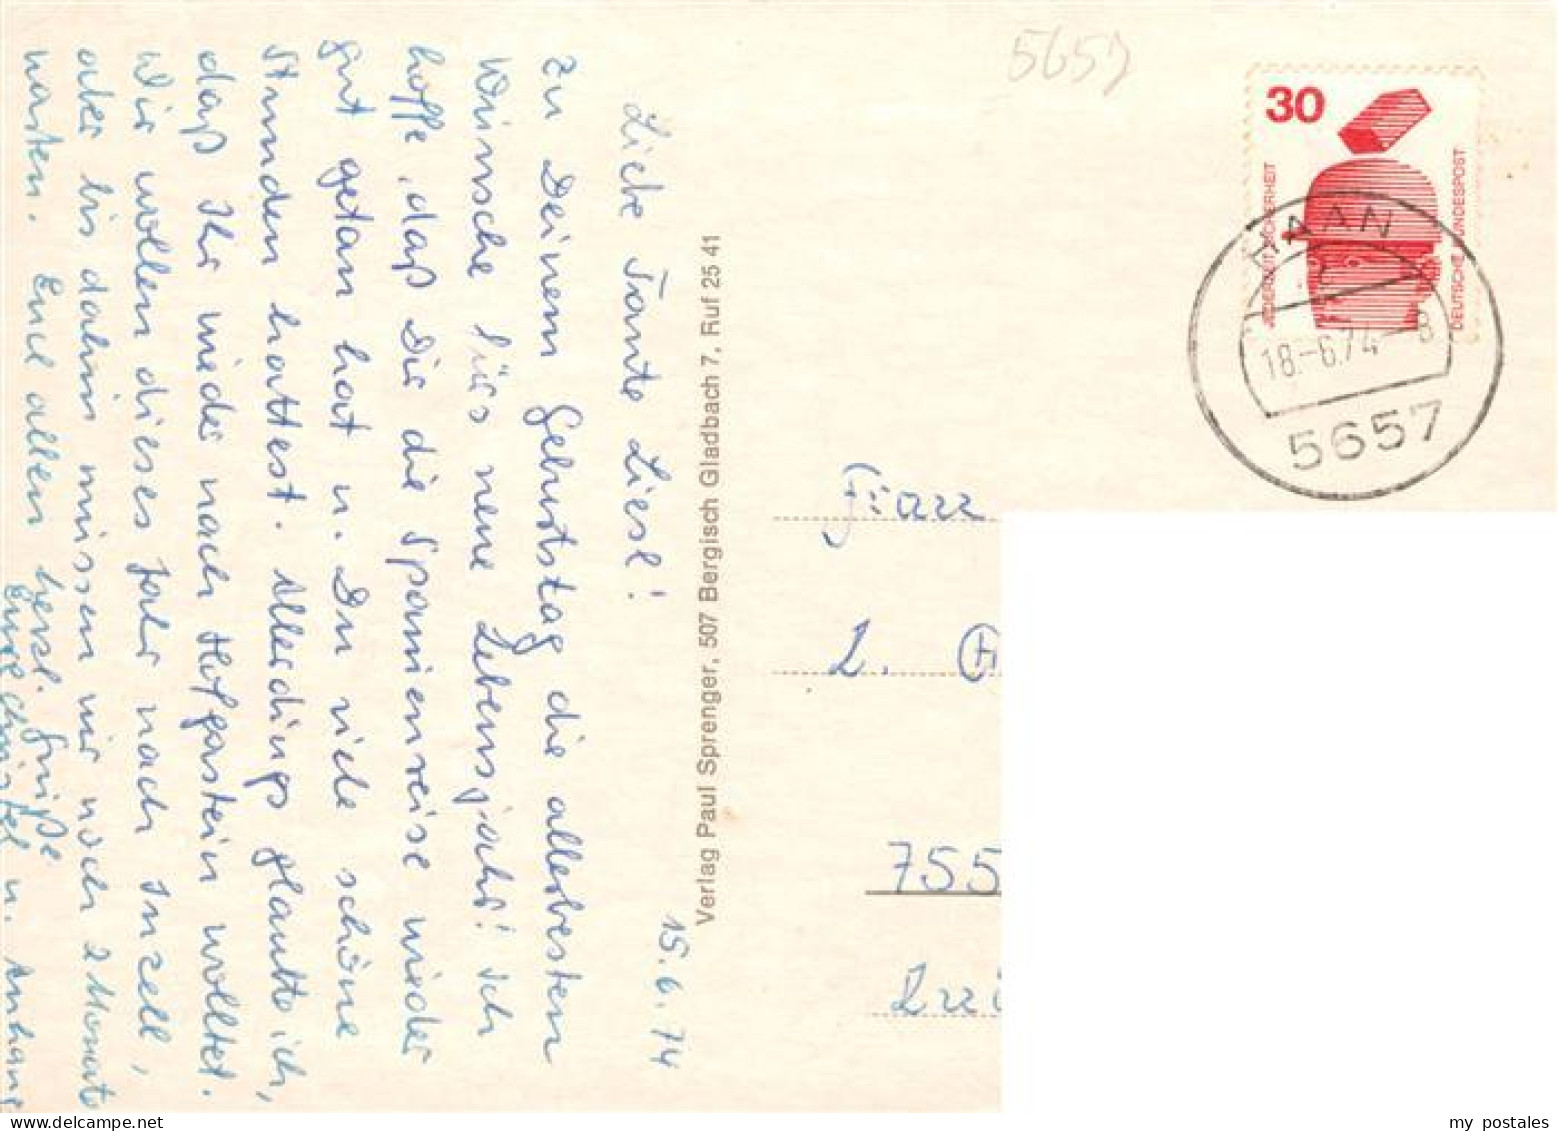 15.6.74
Liebe Tante Liesl!
Zu Deinem Geburtstag die allerbesten
Wünsche fürs neue Lebensjahr! Ich
hoffe, daß Dir die Spanienreise wieder
gut getan hat u. Du viele schöne
Stunden hattest. Allerdings glaubte ich,
daß Ihr wieder nach Hofgastein wolltet.
Wir wollen dieses Jahr nach Inzell,
aber bis dahin müssen wir noch 2 Monate
warten. Euch allen herzl. Grüße
Eure Christel u. Anhang
Verlag Paul Sprenger, 507 Bergisch Gladbach 7, Ruf 25 41
5657
30
JEDERZEIT SICHERHEIT
DEUTSCHE BUNDESPOST
HAAN
1
18.-6.74-8
5657
Frau
L. H
755
delcampe.net
my_postales